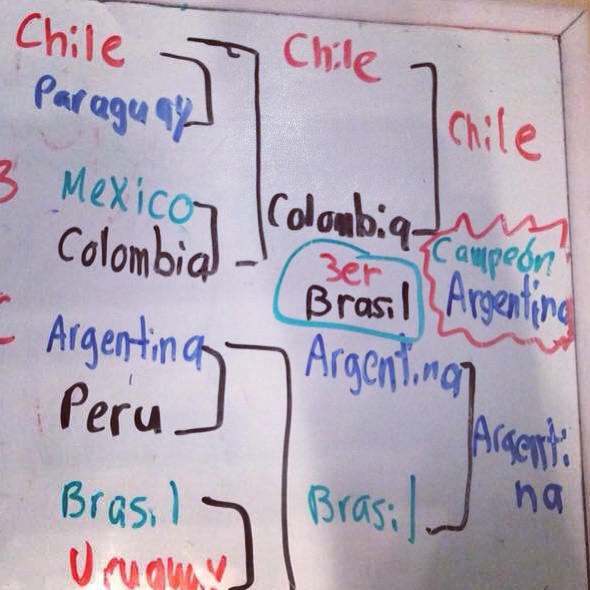 Chile
Paraguay
Mexico
Colombia
Argentina
Peru
Brasil
Uruguay
Chile
Colombia
3er
Brasil
Argentina
Brasil
Chile
Campeón
Argentina
Argenti
na